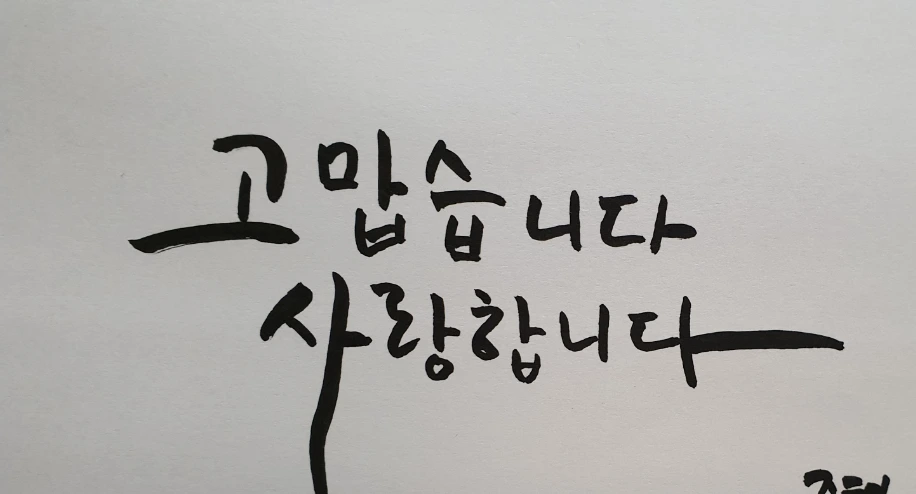 고맙습니다
사랑합니다